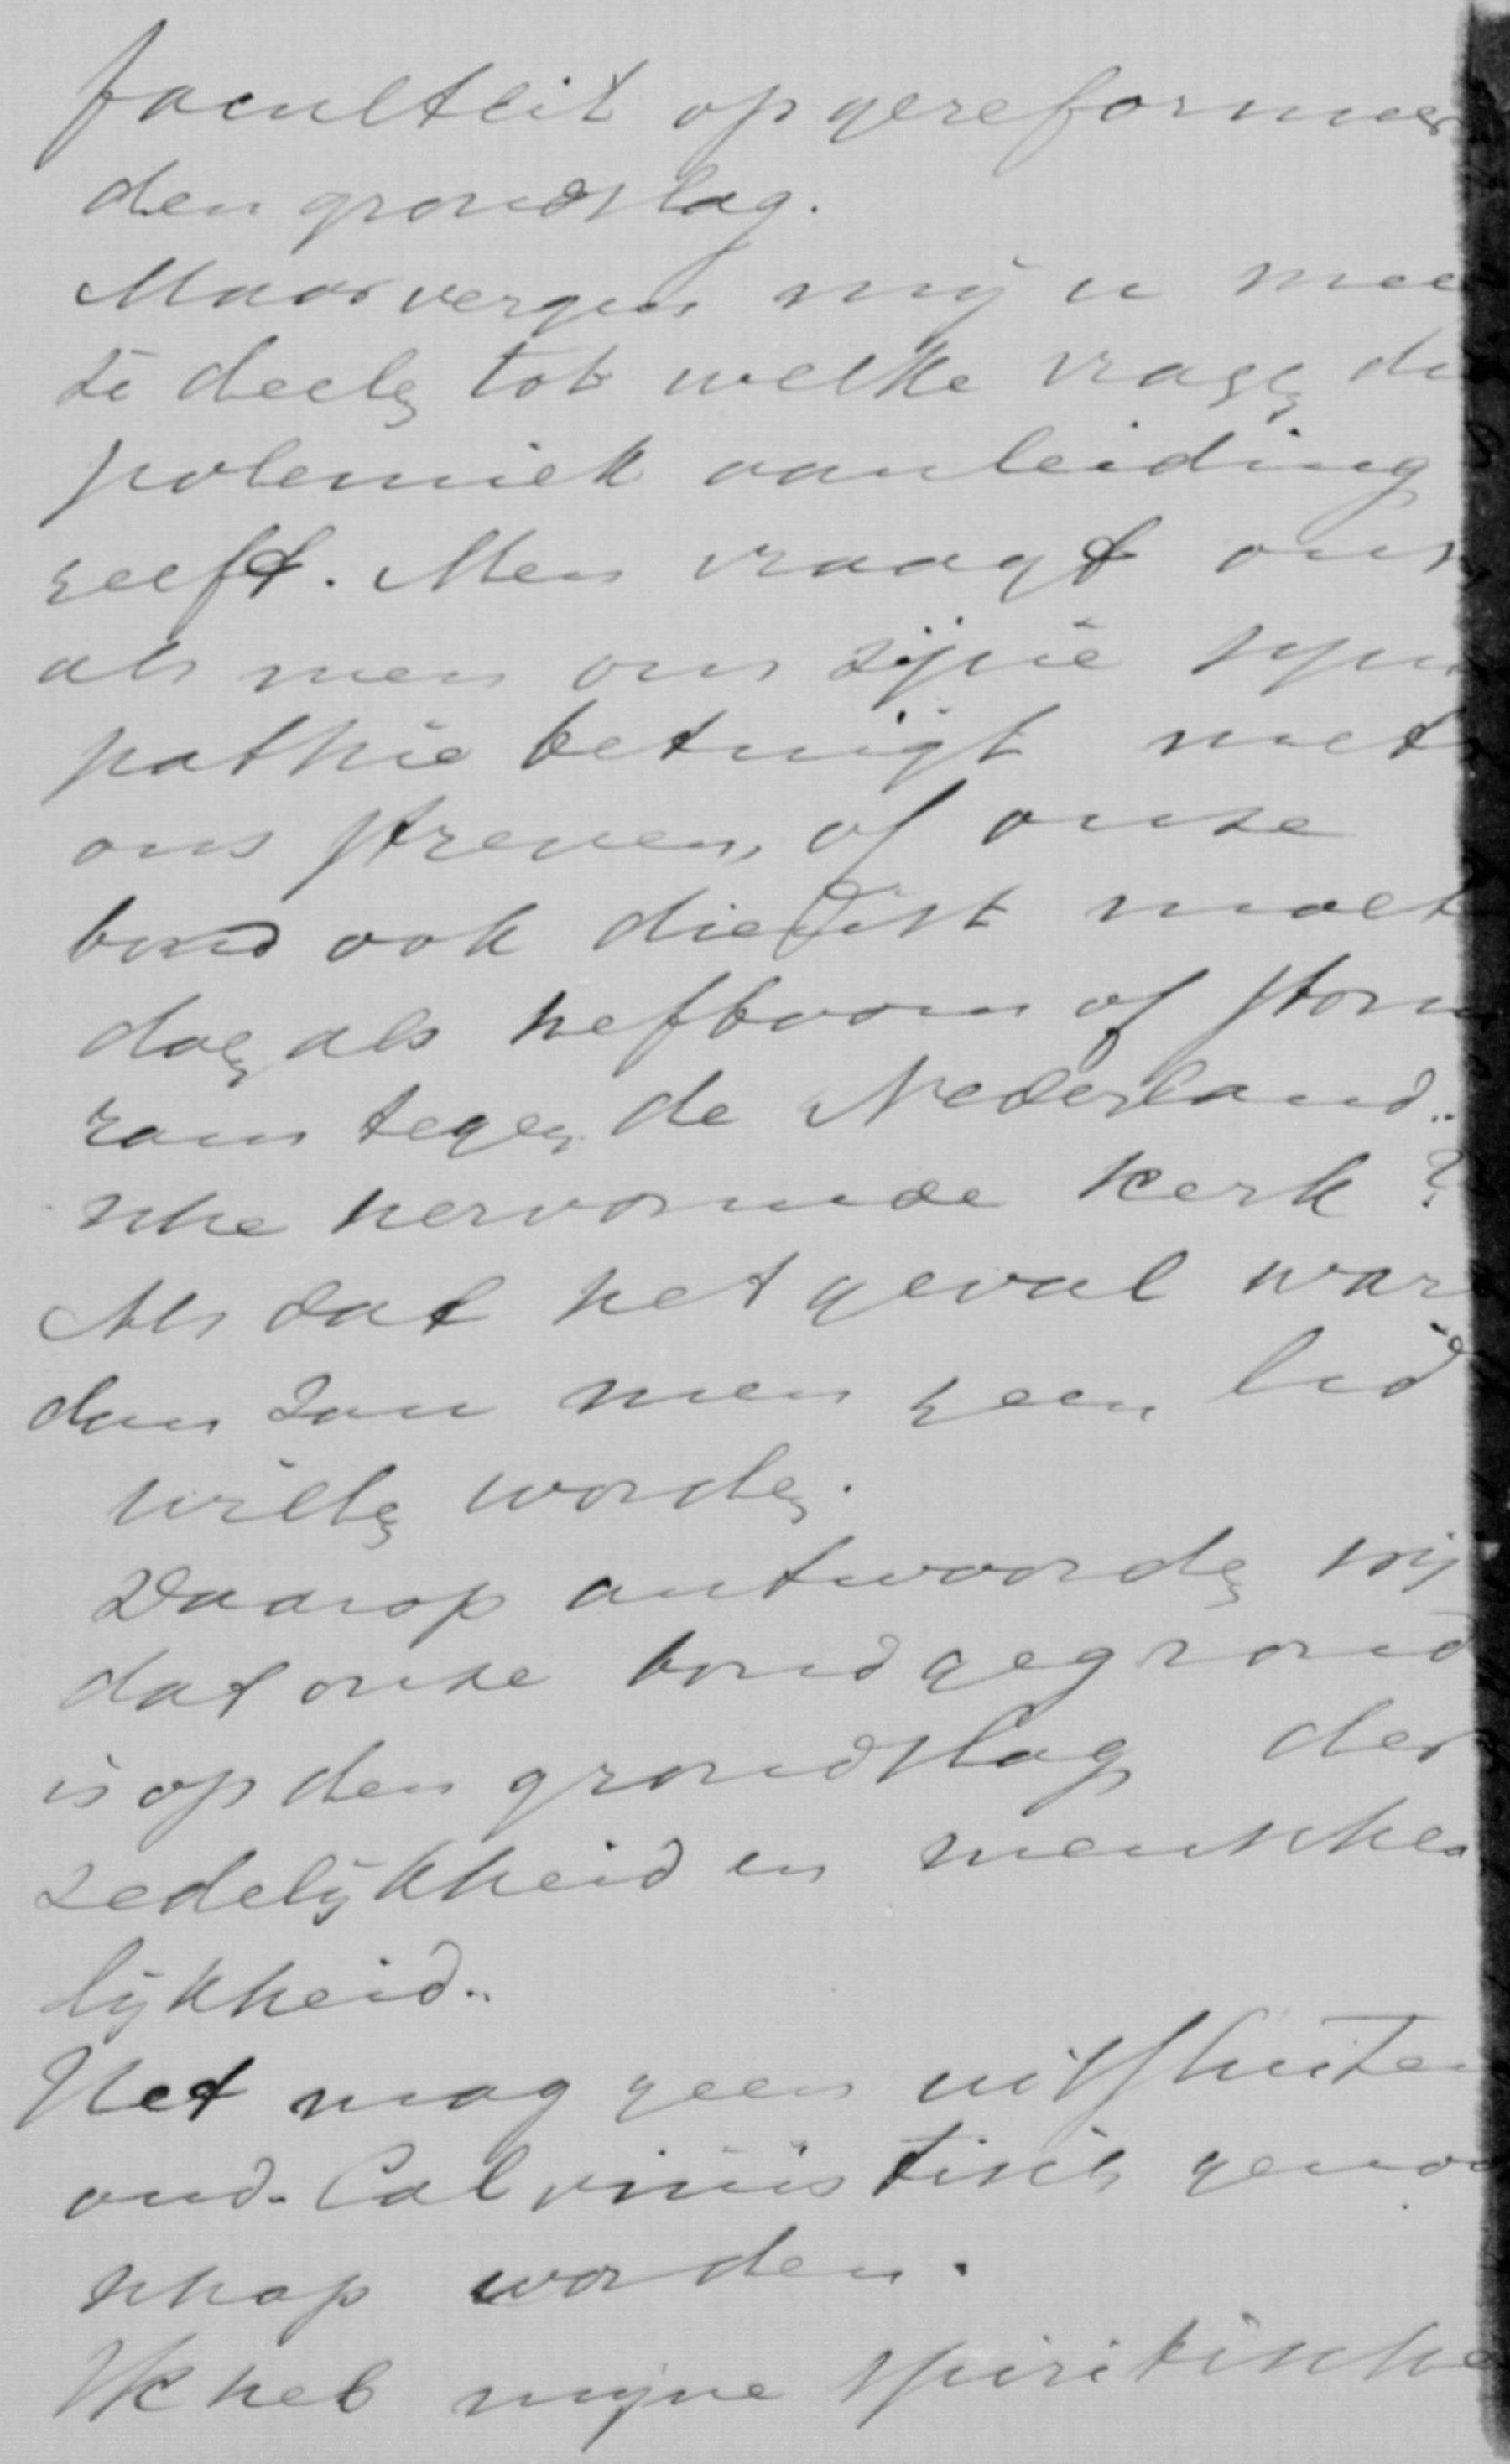 faculteit op gereformeer
den grondslag.
Maar vergun mij u mee
te deelen tot welke vragen de
polemiek aanleiding
geeft. Men vraagt ons,
als men ons zijne sym
pathie betuigt met
ons streven, of onze
bond ook dienst moet
doen als hefboom of storm
ram tegen de Nederland..
sche hervormde kerk?
Als dat het geval ware
dan zou men geen lid
willen worden.
Daarop antwoorden wij
dat onze bond gegrond
is op den grondslag der
zedelijkheid en mensche
lijkheid..
Het mag geen uitsluitend
oud-Calvinistisch genoot
schap worden.
Ik heb mijne spiritische